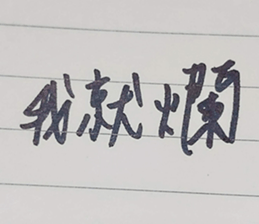 我就爛